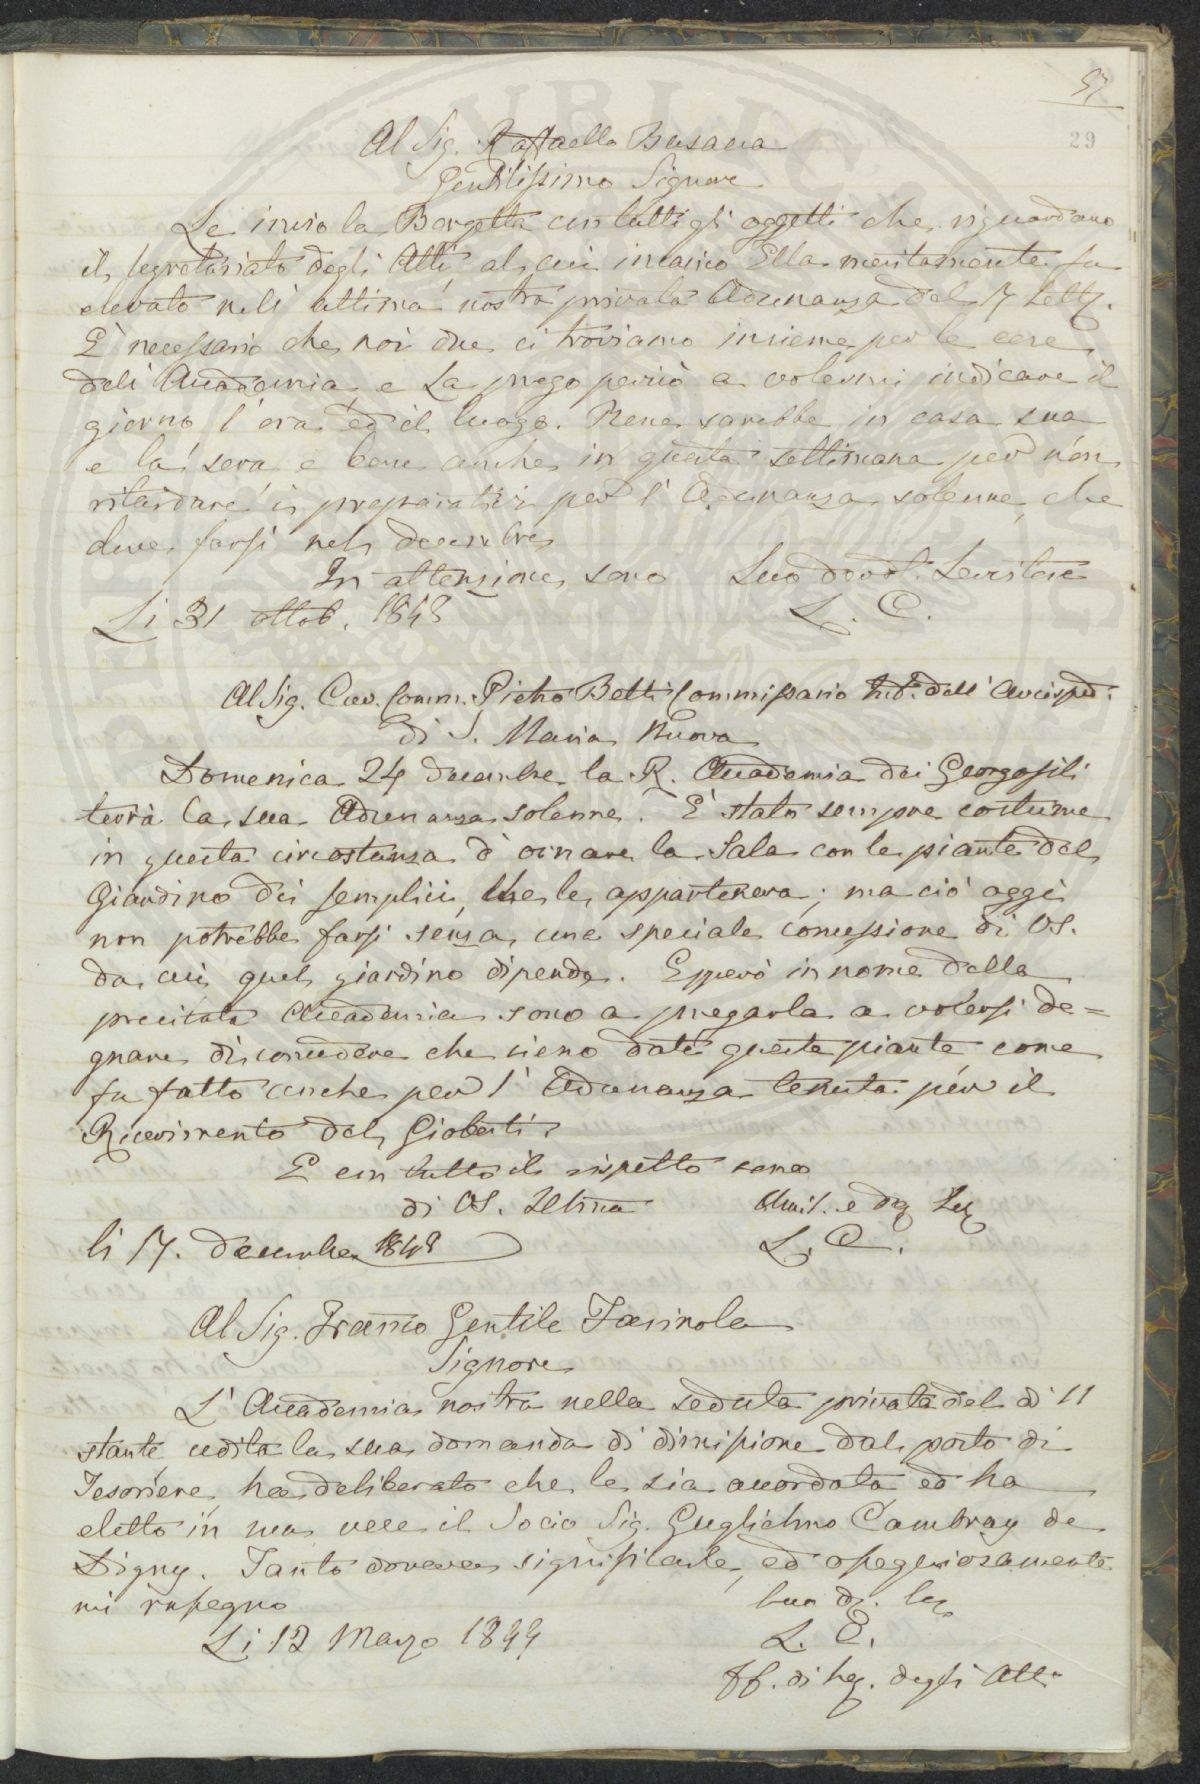 57
29
Al Sig. Raffaello Busacca
Gentilissimo Signore
Le invio la Borgetta con tutti gli oggetti che riguardano
il segretariato degli Atti al cui incarico Ella meritamente fu
elevato nell' ultima nostra privata Adunanza del 17 Sett.
È necessario che noi due ci troviamo insieme per le cose
dell' Accademia e La prego perciò a volermi indicare il
giorno l' ora ed il luogo. Bene sarebbe in casa sua
e la sera e bene anche in questa settimana per non
ritardare i preparativi per l' Adunanza solenne che
deve farsi nel decembre
In attenzione sono Suo devot. Servitore
L. C.
Li 31 ottob. 1848
Al Sig. Cav. Comm. Pietro Betti Commissario dell' Arcisped.
di S. Maria Nuova
Domenica 24 decembre la R. Accademia dei Georgofili
terrà la sua Adunanza solenne. È stato sempre costume
in questa circostanza d' ornare la Sala con le piante del
Giardino dei Semplici, che le apparteneva; ma ciò oggi
non potrebbe farsi senza una speciale concessione di VS.
da cui quel giardino dipende. Epperò in nome della
precitata Accademia sono a pregarla a volersi de=
gnare di concedere che sieno date queste piante come
fu fatto anche per l' Adunanza tenuta per il
Ricevimento del Gioberti.
E con tutto il rispetto sono
di VS. Illma Umil. e dev Ser
L. C.
li 17. decembre 1848
Al Sig. Franco Gentile Farinola
Signore
L' Accademia nostra nella seduta privata del dì 11
stante udita la sua domanda di dimissione dal posto di
Tesoriere, ha deliberato che le sia accordata ed ha
eletto in sua vece il Socio Sig. Guglielmo Cambray de
Digny. Tanto doveva significarle, ed ossequiosamente
mi rassegno
Suo dev. ser
Li 12 Marzo 1849
L. C.
ff. di Seg. degli Atti